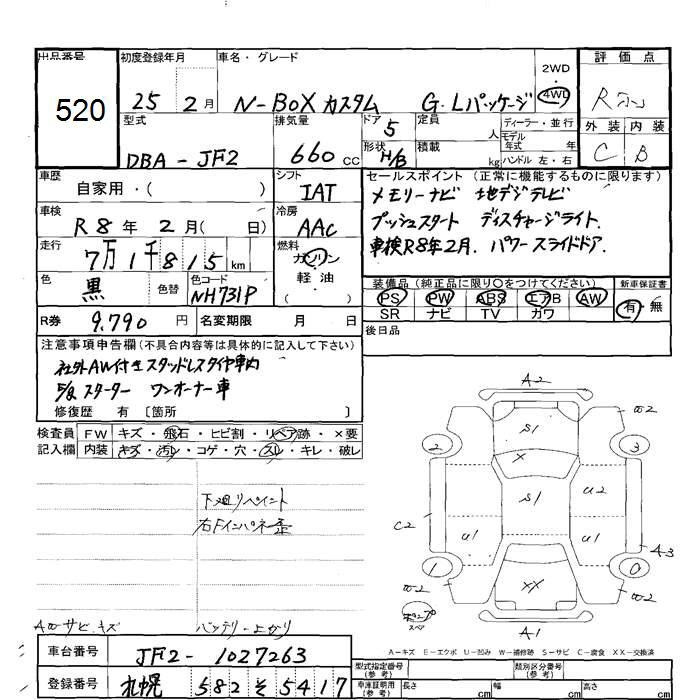 出品番号
520
初度登録年月
25 2月
車名・グレード
N-BOX カスタム G・Lパッケージ
2WD
・
4WD
評価点
R
外装 内装
C B
型式
DBA-JF2
排気量
660 cc
ドア
5
形状
H/B
定員
人
積載
kg
ディーラー・並行
モデル
年式 年
ハンドル 左・右
車歴
自家用・( )
シフト
IAT
車検
R8年 2月( 日)
冷房
AAC
走行
7万1千815 km
燃料
ガソリン
・
軽油
( )
色
黒
色替
色コード
NH731P
セールスポイント (正常に機能するものに限ります)
メモリーナビ 地デジテレビ
プッシュスタート ディスチャージライト.
車検R8年2月. パワースライドドア.
装備品(純正品に限り○をつけてください)
新車保証書
PS PW ABS エアB AW
SR ナビ TV カワ
有・無
R券 9.790 円
名変期限 月 日
後日品
注意事項申告欄(不具合内容等は具体的に記入して下さい)
社外AW付きスタッドレスタイヤ車内
スターター ワンオーナー車
修復歴 有 〔箇所 〕
検査員
記入欄
FW キズ・飛石・ヒビ割・リペア跡・×要
内装 キズ・汚レ・コゲ・穴・スレ・キレ・破レ
下廻りペイント
右Fインパネ歪
AWサビ.キズ
バッテリー上がり
A2
W2
S1
2
3
X
S1
U2
C2
U1
U1
A3
1
0
XX
W2
W2
スペア
A1
A-キズ E-エクボ U-凹み W-補修跡 S-サビ C-腐食 XX-交換済
車台番号 JF2-1027263
登録番号 札幌 582 そ 5417
型式指定番号
(参考)
類別区分番号
(参考)
車庫証明用
(参考)
長さ cm
幅 cm
高さ cm